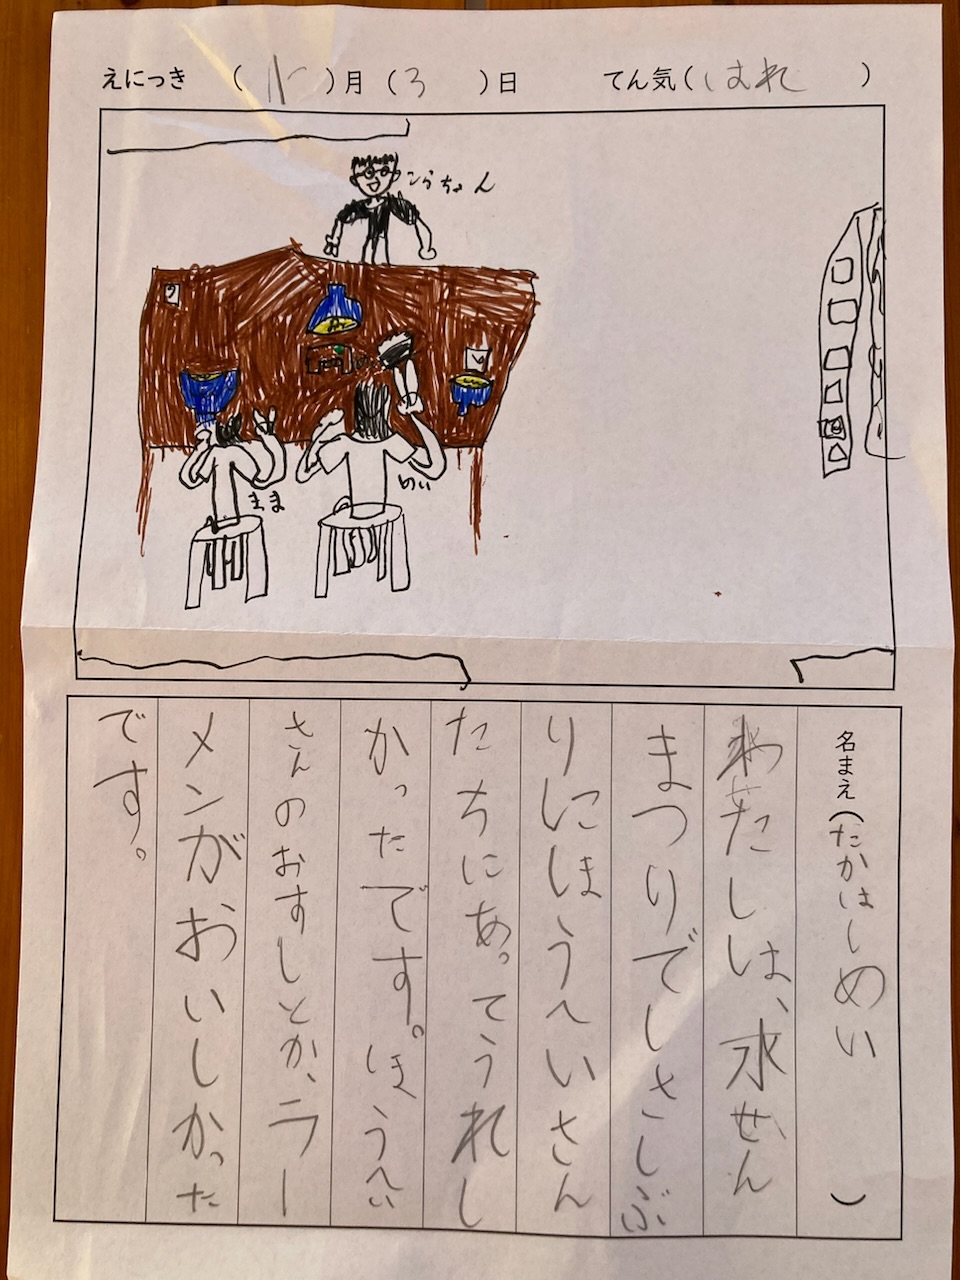 えにつき （ ）月（3）日 てん気（はれ）
まま
めい
名まえ（たかはしめい）
わたしは、水せん
まつりでしさしぶ
りにほうへいさん
たちにあってうれし
かったです。ほうへい
さんのおすしとか、ラー
メンがおいしかった
です。